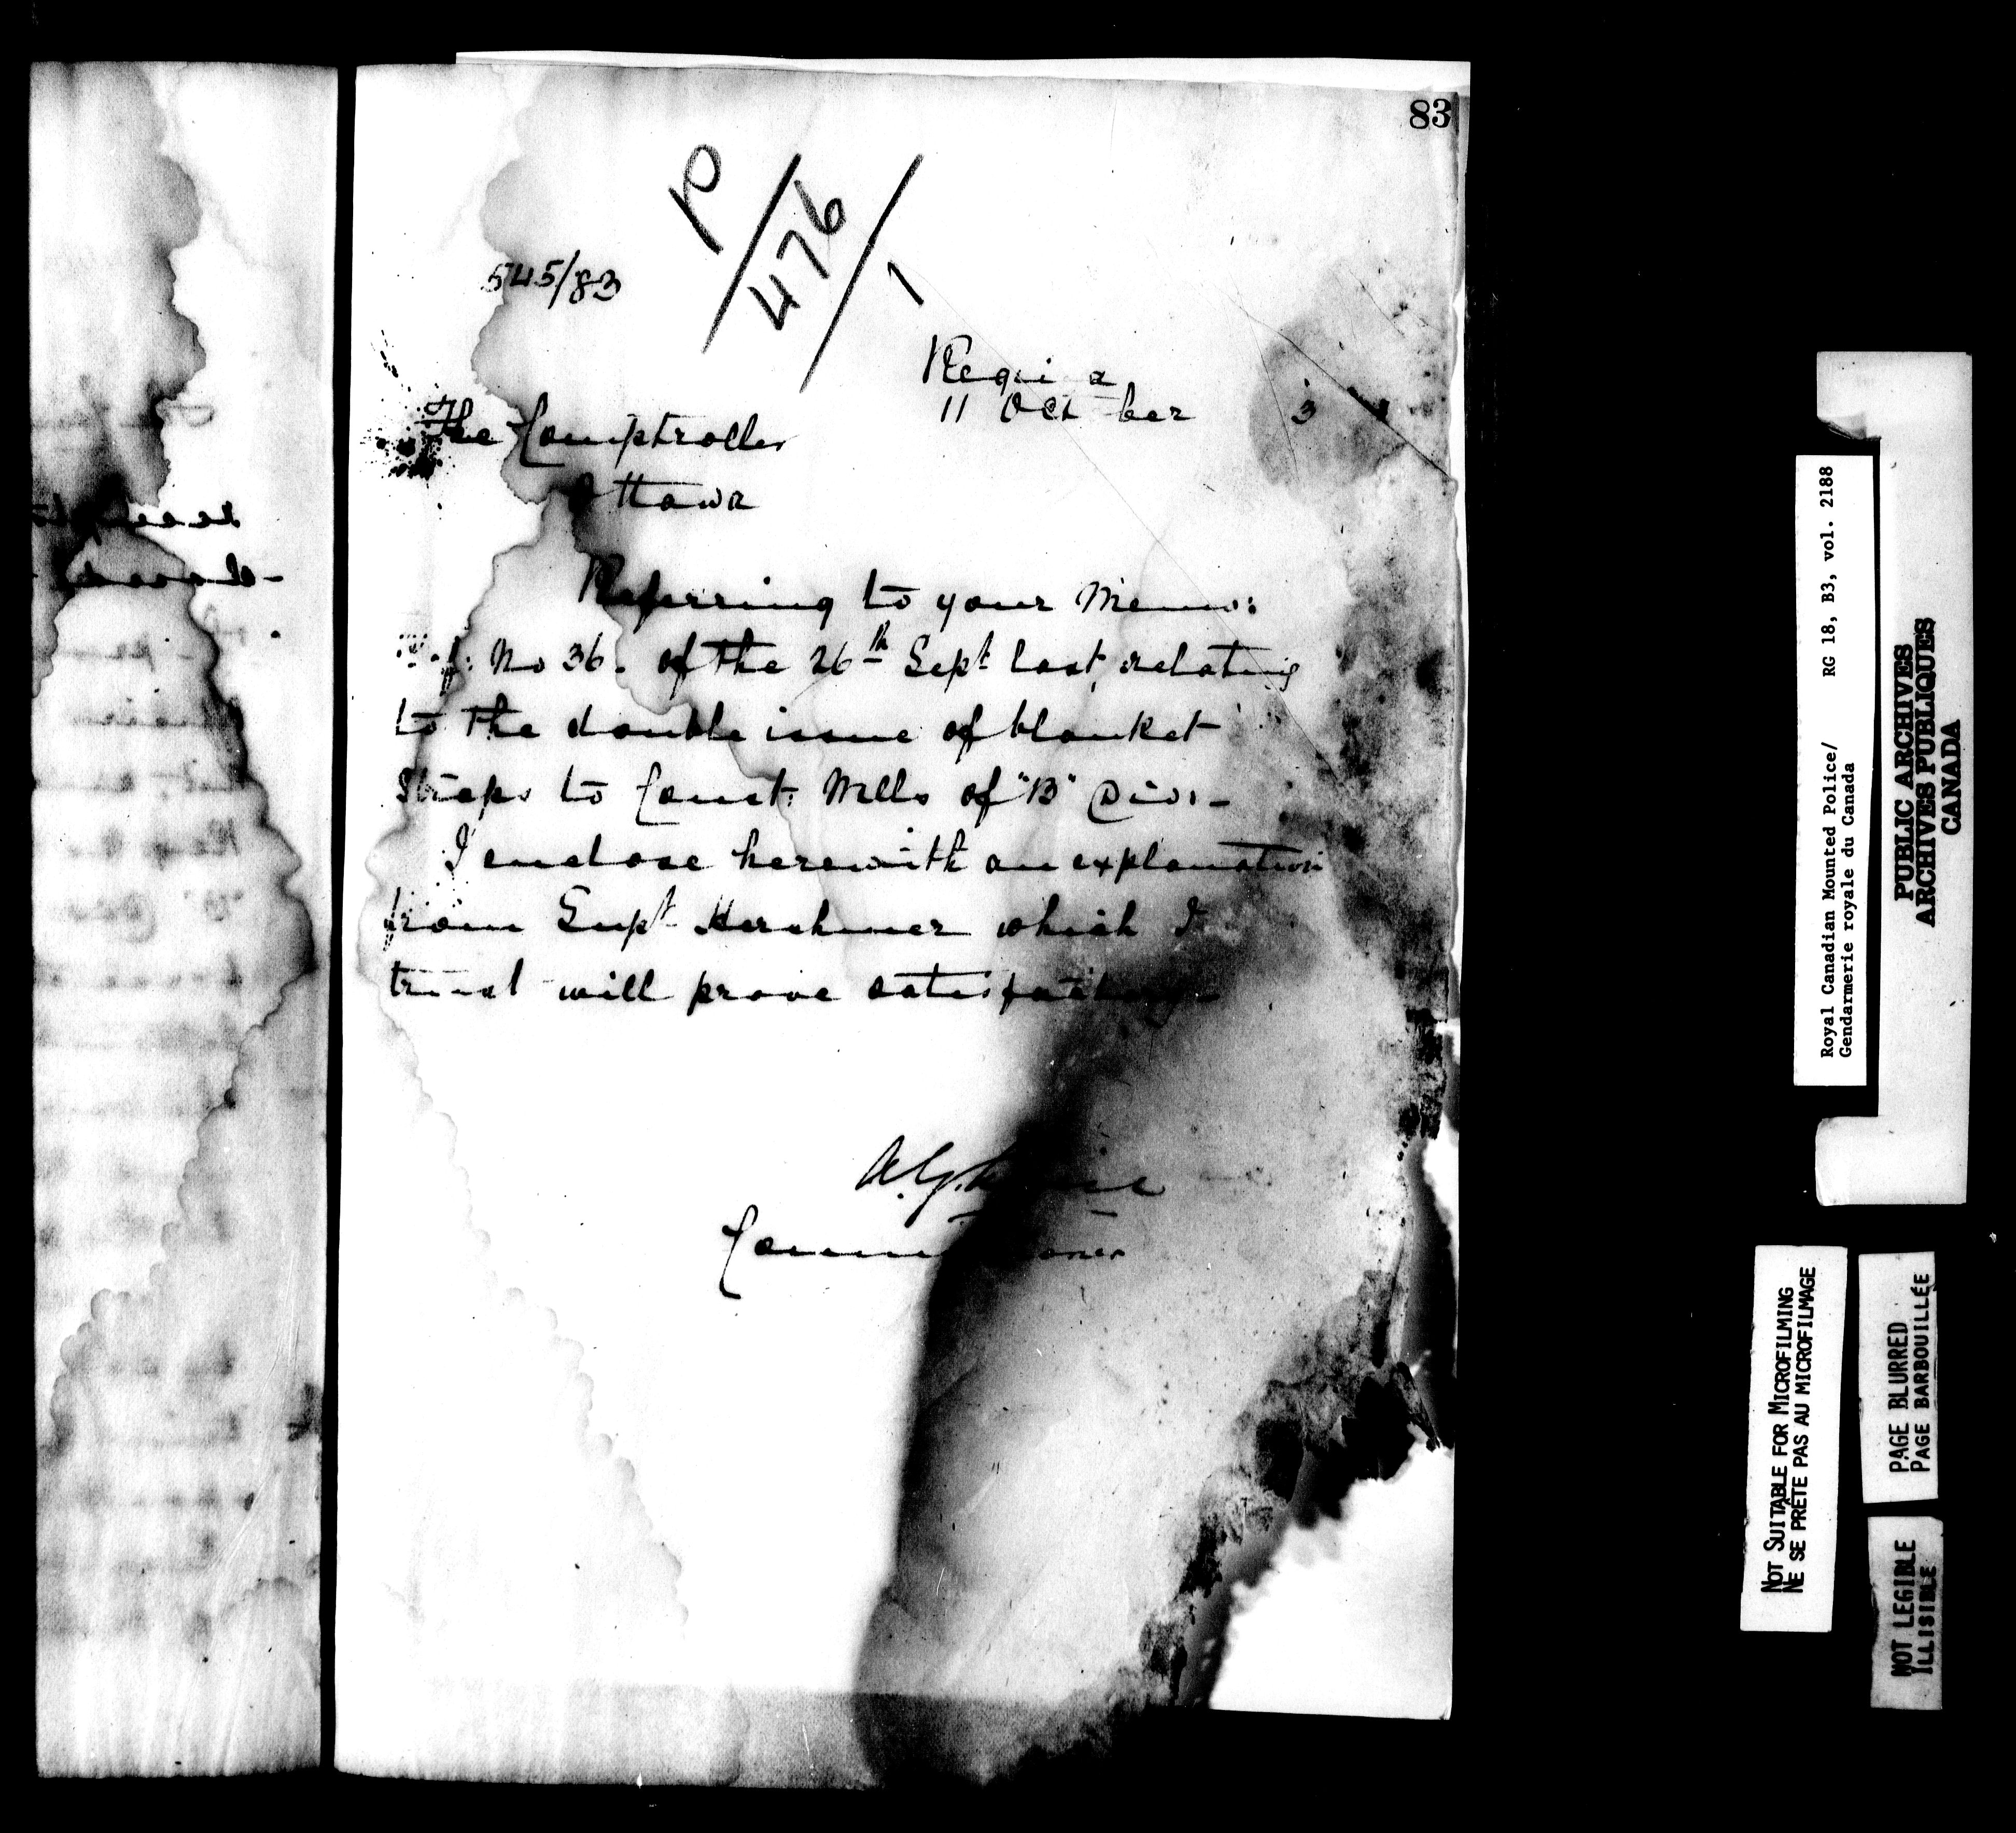 83
P/476/1
545/83
Regina
11 October 3
The Comptroller
Ottawa
Referring to your Memo:
No 36. of the 26th Sept last, relating
to the double issue of blanket
Straps to Const: Mills of "B" Divn-
I enclose herewith an explanation
from Supt Herchmer which I
trust will prove satisfactory-
A.G. Irvine
Commissioner
Royal Canadian Mounted Police/ RG 18, B3, vol. 2188
Gendarmerie royale du Canada
PUBLIC ARCHIVES
ARCHIVES PUBLIQUES
CANADA
NOT SUITABLE FOR MICROFILMING
NE SE PRÊTE PAS AU MICROFILMAGE
PAGE BLURRED
PAGE BARBOUILLÉE
NOT LEGIBLE
ILLISIBLE